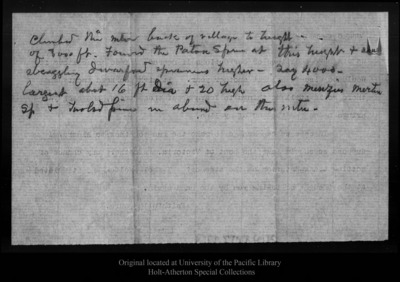 Climbed this mtn back of village to height
of 3000 ft. Found the Paton Spruce at this height &
straggling dwarfed specimens higher - say 4000 -
largest abt 16 ft Dia & 20 high also menzies mertn
Sp & in abund on the mtn -
Original located at University of the Pacific Library
Holt-Atherton Special Collections